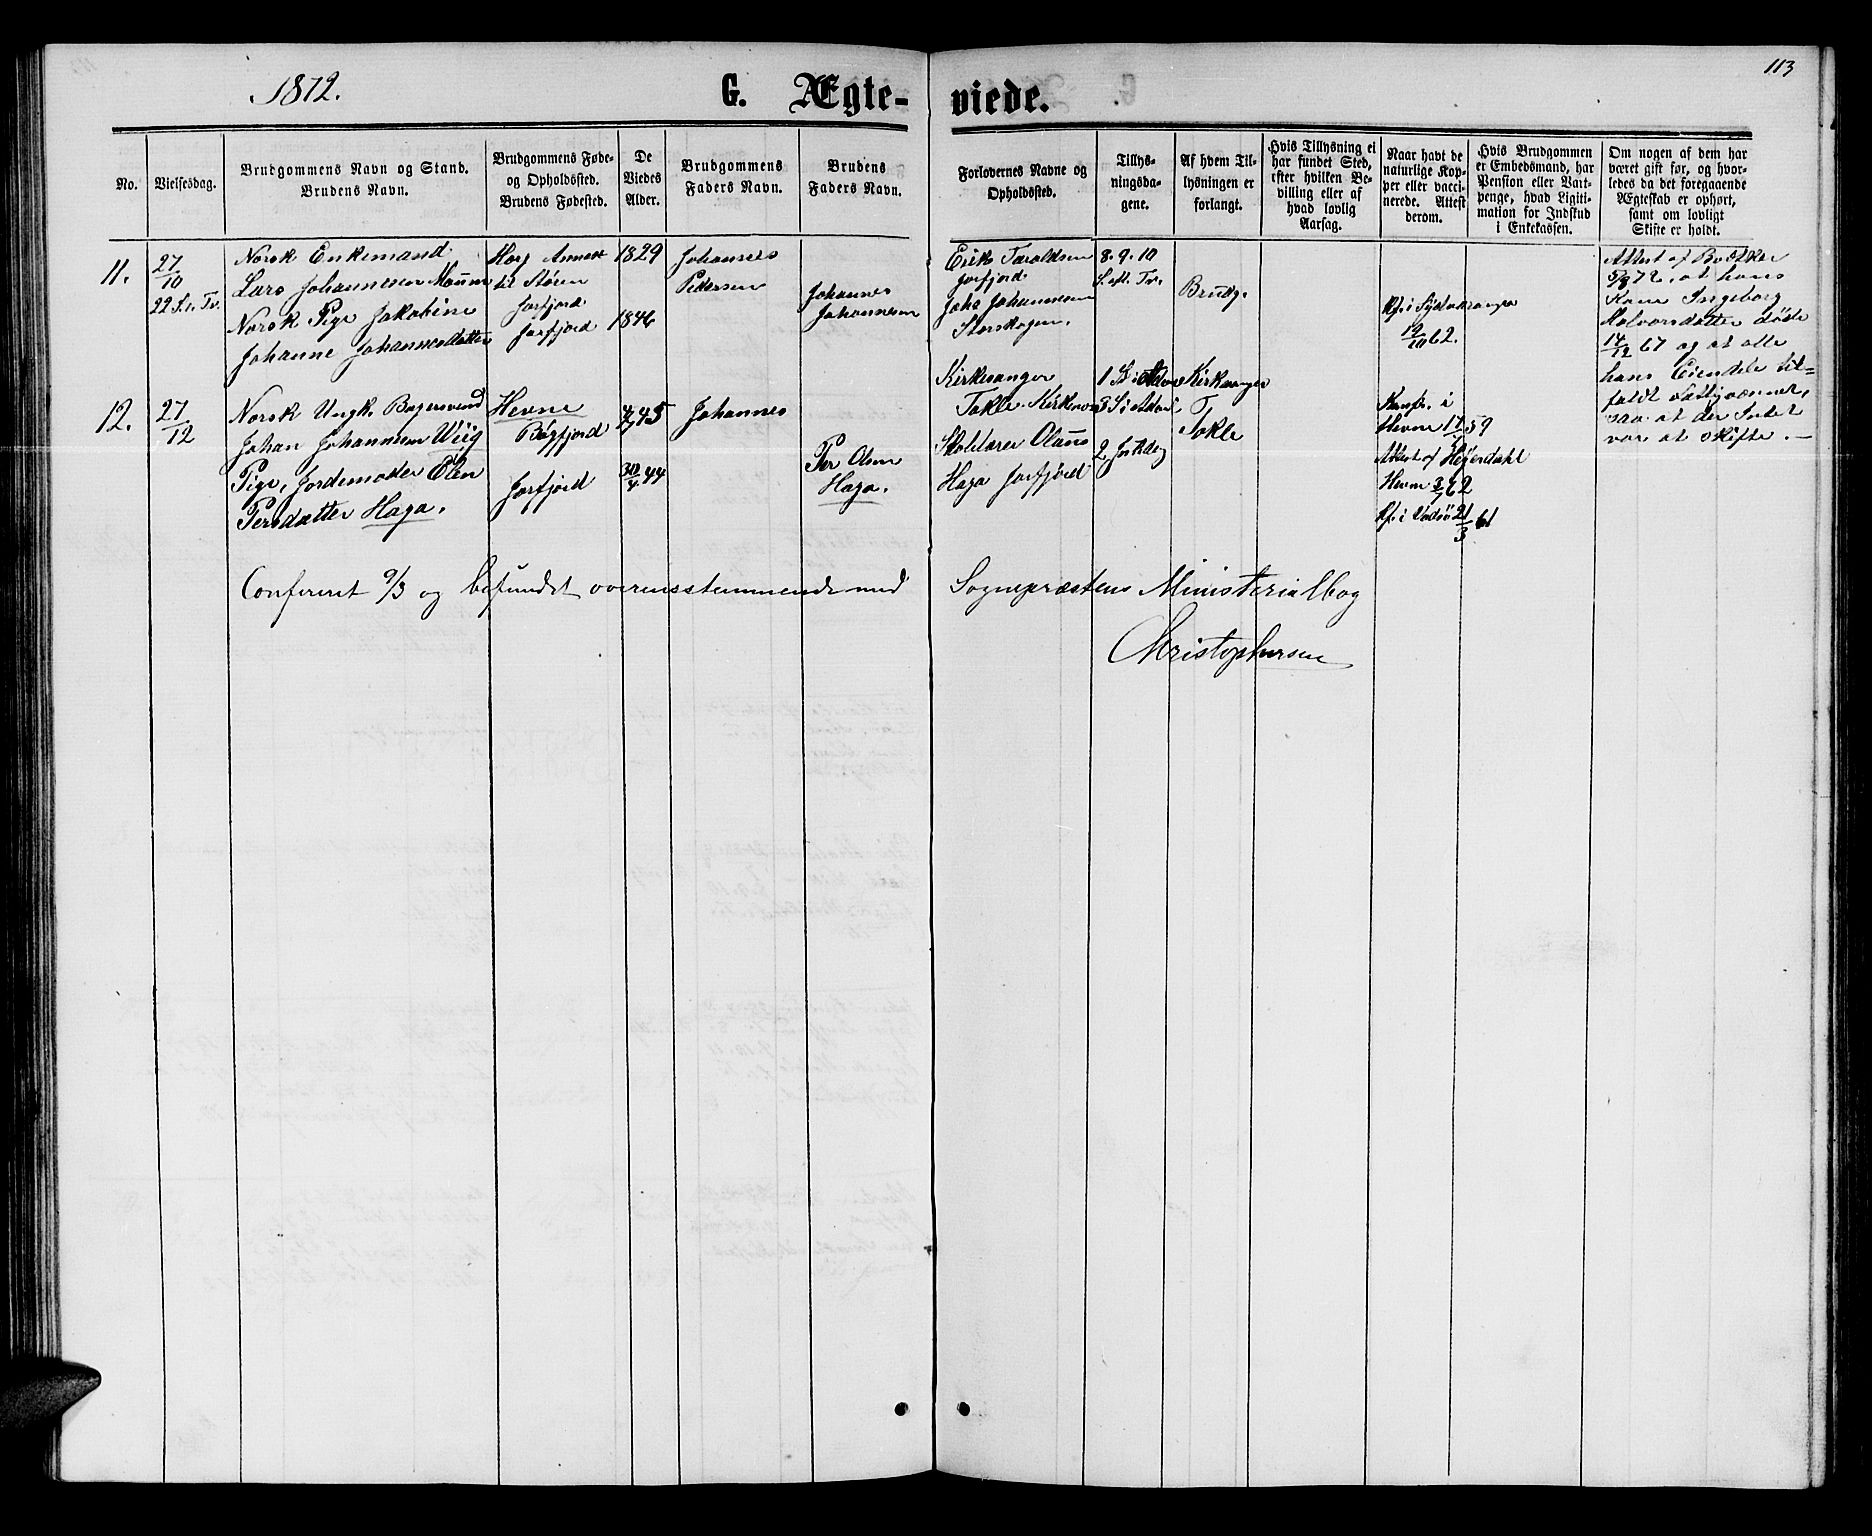 113
1872.
G. Ægte-
viede.
No.
Vielsesdag.
Brudgommens Navn og Stand.
Brudens Navn.
Brudgommens Føde-
og Opholdssted.
Brudens Fødested.
De
Viedes
Alder.
Brudgommens
Faders Navn.
Brudens
Faders Navn.
Forlovernes Navne og
Opholdssted.
Tillys-
ningsda-
gene.
Af hvem Til-
lysningen er
forlangt.
Hvis Tillysning ei
har fundet Sted,
efter hvilken Be-
villing eller af
hvad lovlig
Aarsag.
Naar havt de
naturlige Kop-
per eller vacci-
nerede. Attest
derom.
Hvis Brudgommen
er Embedsmand, har
Pension eller Vart-
penge, hvad Ligiti-
mation for Indskud
i Enkekassen.
Om nogen af dem har
været gift før, og hvor-
ledes da det foregaaende
Ægteskab er ophørt,
samt om lovligt
Skifte er holdt.
11.
27/10
22 S. e. Tr.
Norsk Enkemand
Lars Johannesen
Norsk Pige Jakobine
Johanne Johannesdatter
Horg Annex
til Støren
Jarfjord
Jarfjord
1829
1846
Johannes
Pedersen
Johannes
Johannesen
Erik Taraldsen
Jarfjord
Johs Johannesen
Storskogen.
8. 9. 10
S. eft. Tr.
Brudg.
Kf. i Sydvaranger
12/10 62.
Attest af
5/8 72, at hans
Kone Ingeborg
Halvorsdatter døde
14/12 67 og at alle
hans Eiendele til-
faldt Fattigvæsenet,
saa at der Intet
var at skifte. —
12.
27/12
Norsk Ungk. Bagersvend
Johan Johannesen Wiig
Pige, Jordemoder Elen
Persdatter Haga.
Hevne
Bøgfjord
Jarfjord
45
30/4 44
Johannes
Per Olsen
Haga.
Kirkesanger
Takle Kirkenes
Skolelærer Olaus
Haga Jarfjord
1 S. i Advent
3 S. i Advent
2 Juledag
Kirkesanger
Takle
Konf. i
Hevne 59
Attest af Heyerdahl
Hevne 3/7 62
Kf. i Vadsø 21/3 61
Confereret 9/3 og befundet overensstemmende med
Sognepræstens Ministerialbog
Christophersen